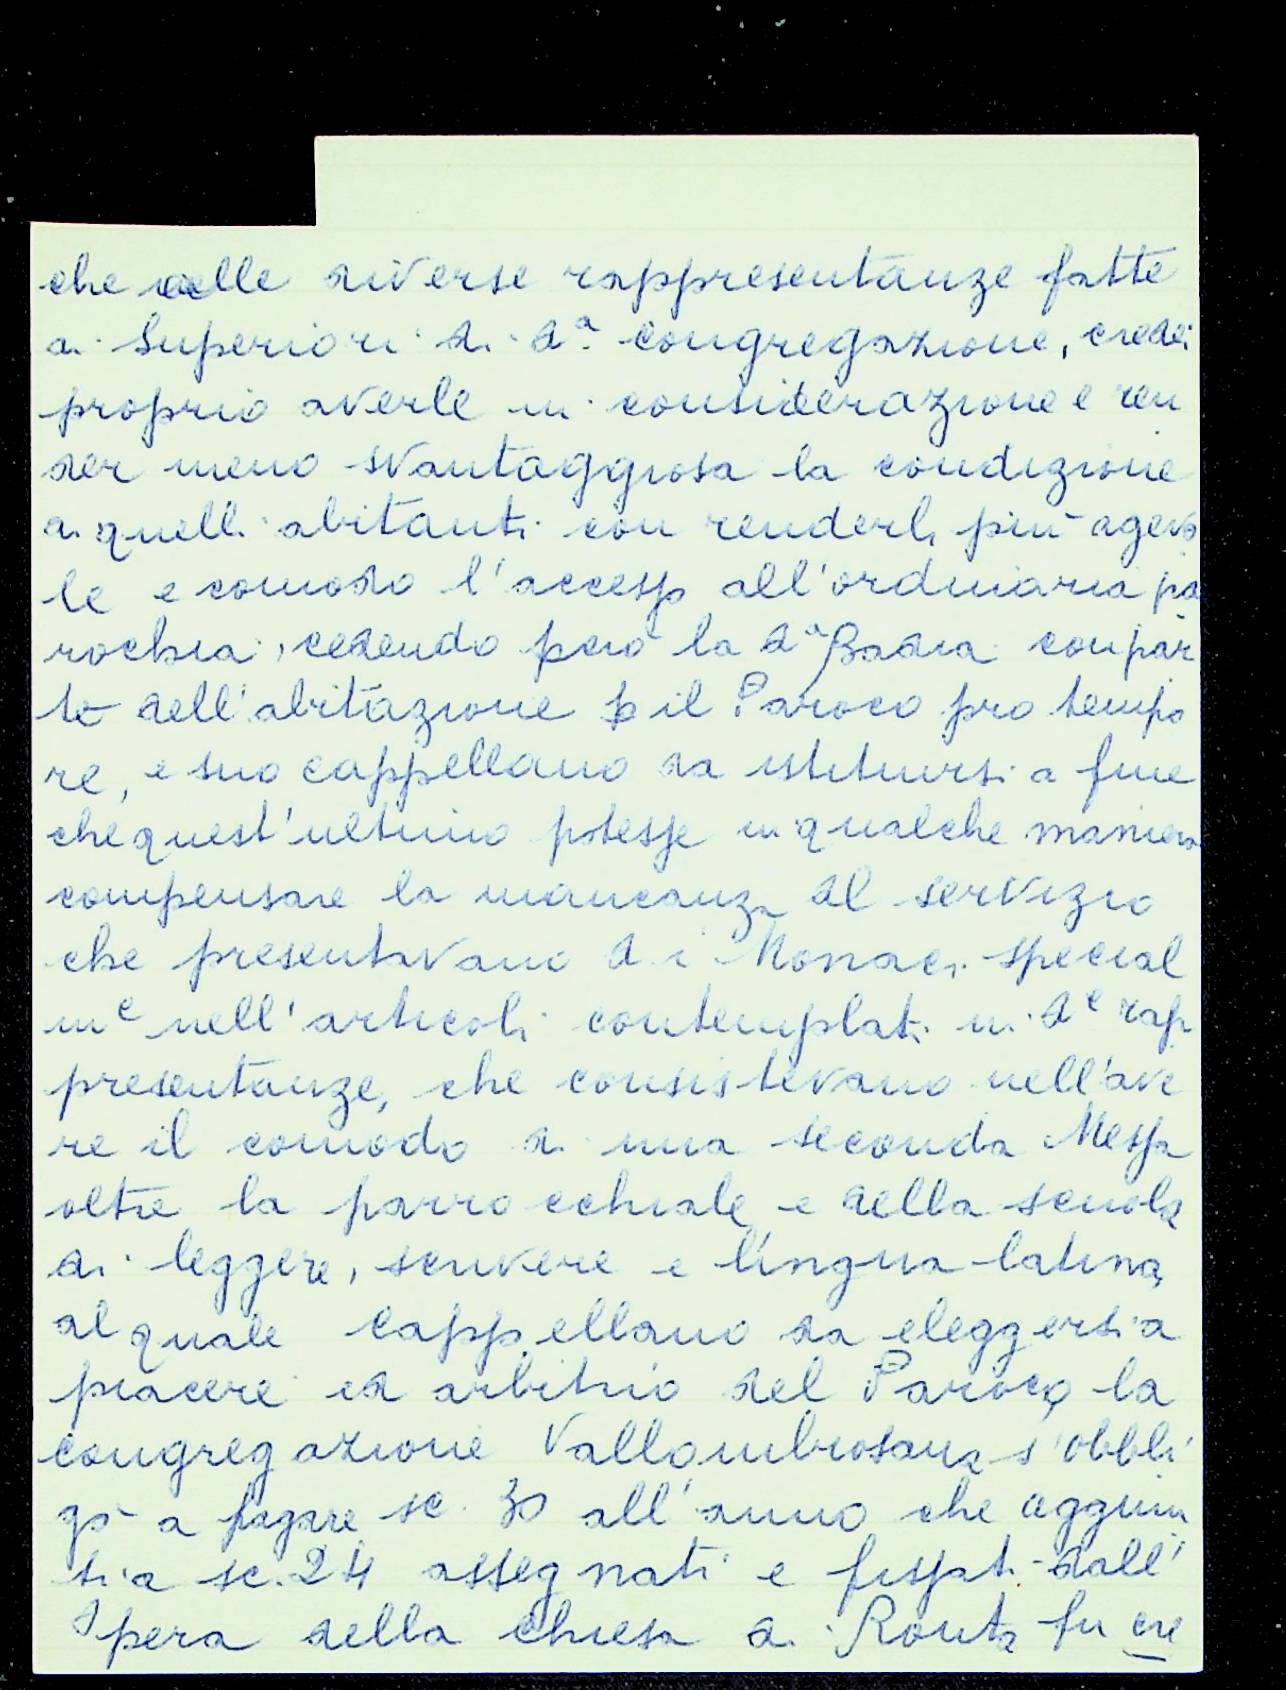 che delle diverse rappresentanze fatte
ai Superiori di d.ª congregazione, credei
proprio averle in considerazione e ren
der meno svantaggiosa la condizione
a quelli abitanti con renderli più agevo
le e comodo l'accesso all'ordinaria pa
rochia, cedendo però la d.ª Badia con par
te dell'abitazione p il Paroco pro tempo
re, e suo cappellano da istituirsi a fine
che quest'ultimo potesse in qualche maniera
compensare la mancanza al servizio
che presentavano d.i Monaci special
m.e nell'articoli contemplati in d.e rap
presentanze, che consistevano nell'ave
re il comodo di una seconda Messa
oltre la parrocchiale e della scuola
di leggere, scrivere e lingua latina,
al quale cappellano da eleggersi a
piacere ed arbitrio del Paroco, la
congregazione Vallombrosana s'obbli
gò a pagare sc. 30 all'anno che aggiun
ti a sc. 24 assegnati e fissati dall'
Opera della chiesa di Ronta fu cre